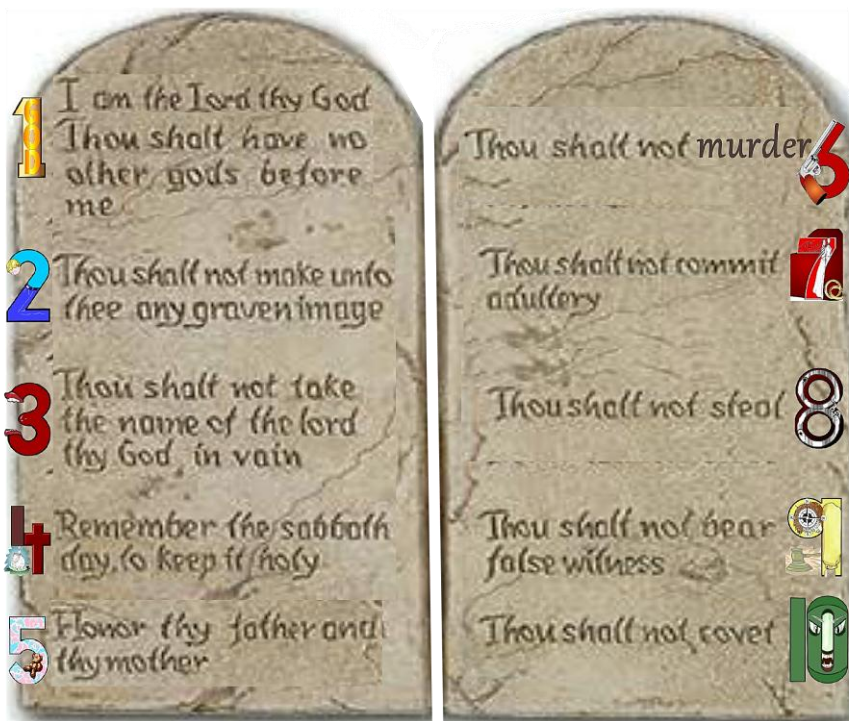 1 I am the Lord thy God
Thou shalt have no
other gods before
me
2 Thou shalt not make unto
thee any graven image
3 Thou shalt not take
the name of the lord
thy God, in vain
4 Remember the sabbath
day, to keep it holy
5 Honor thy father and
thy mother
Thou shalt not murder 6
Thou shalt not commit 7
adultery
Thou shalt not steal 8
Thou shalt not bear 9
false witness
Thou shalt not covet 10